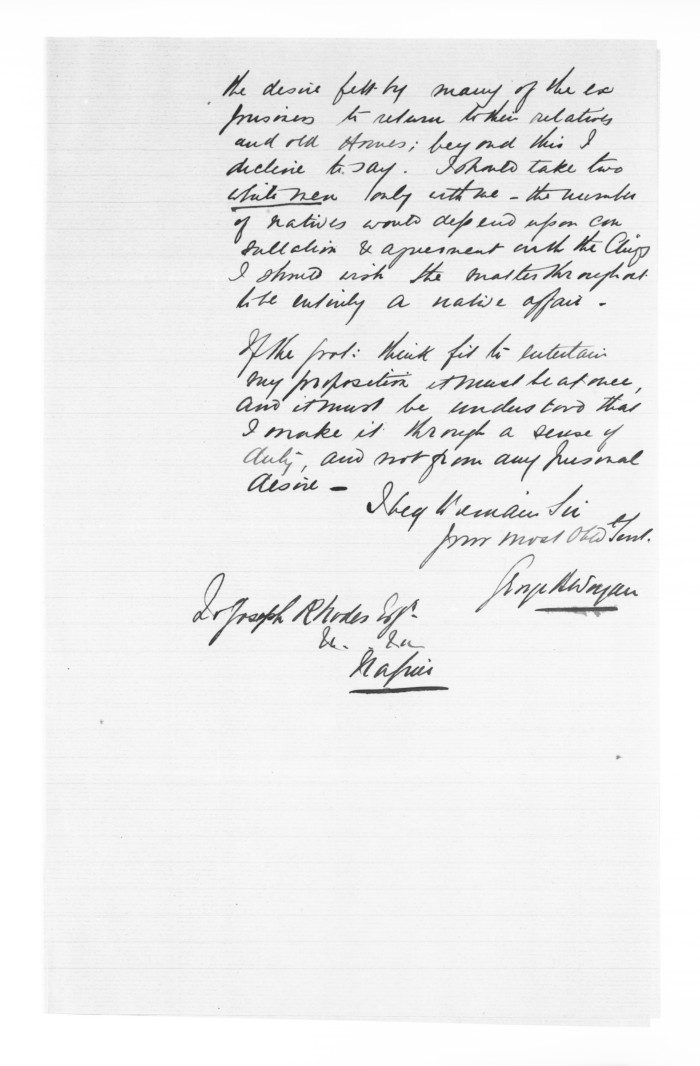 the desire felt by many of the ex
prisoners to return to their relatives
and old Homes; beyond this I
decline to say. I should take two
white men only with me - the number
of natives would depend upon con
sultation & agreement with the Chiefs
I should wish the matter throughout
to be entirely a native affair -
If the Govt: think fit to entertain
my proposition it must be at once,
and it must be understood that
I make it through a sense of
duty, and not from any personal
desire -
I beg to remain Sir
Your most Obed Servt.
George H Worgan
To Joseph Rhodes Esqr.
&c. &c
Napier